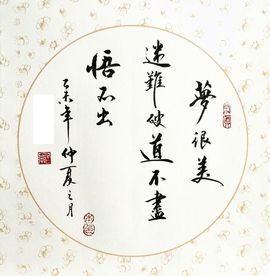 夢很美
迷難破道不盡
悟不出
乙未年仲夏之月